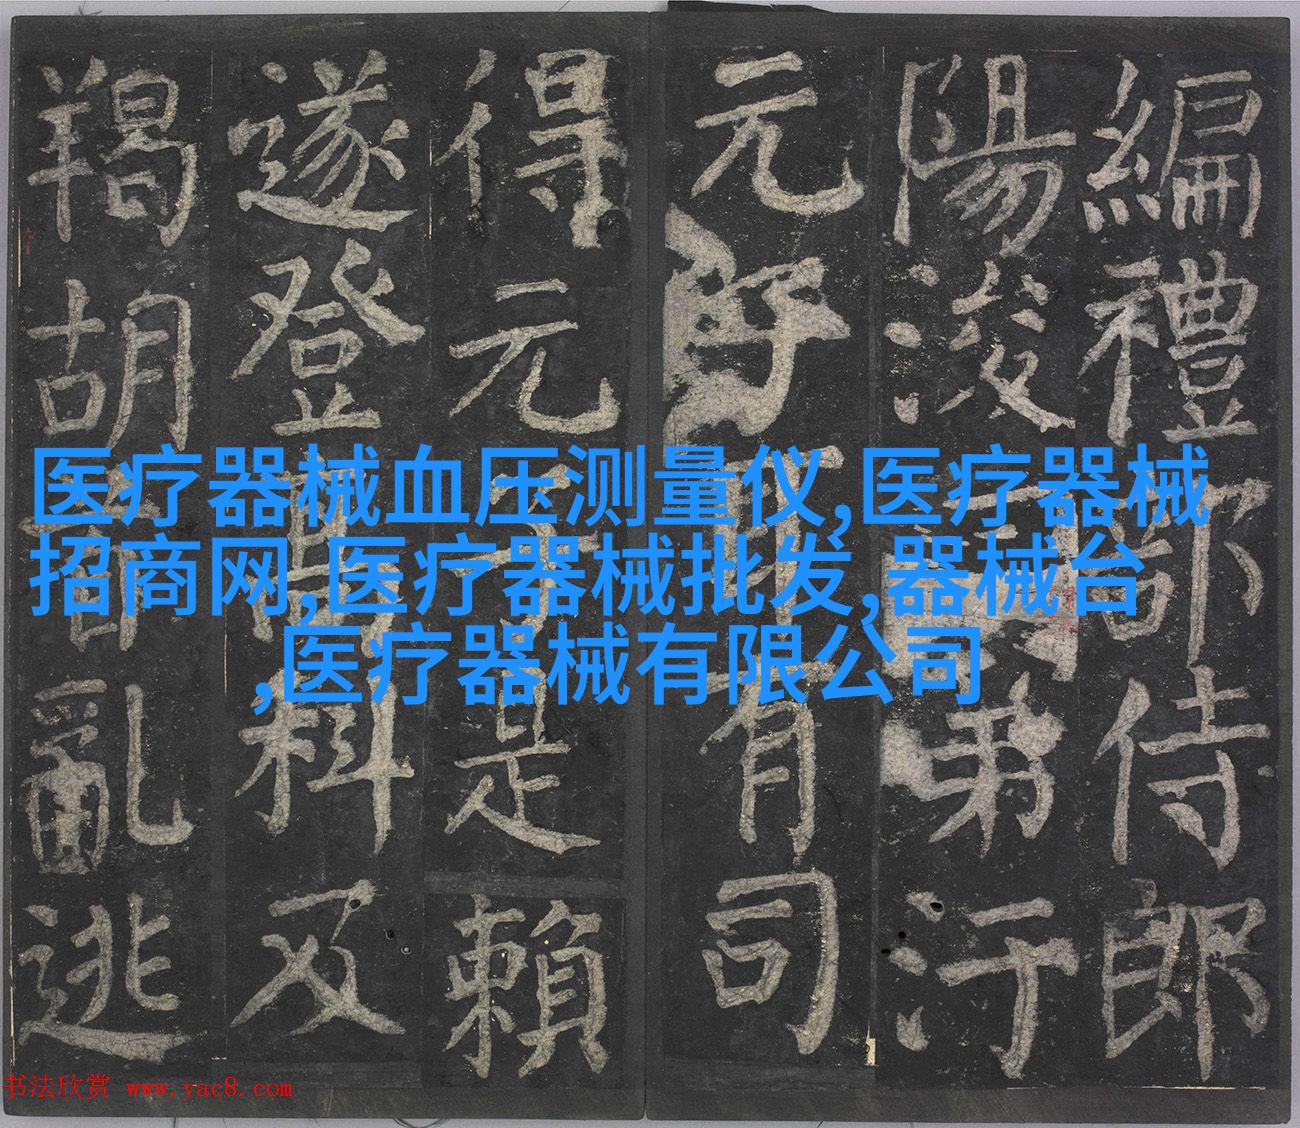 編禮部侍郎
陽浚弟汙
元子耳有司
得元子是賴
遂登高科及
羯胡首亂逃
医疗器械血压测量仪,医疗器械
招商网,医疗器械批发,器械台
,医疗器械有限公司
书法欣赏 www.yac8.com